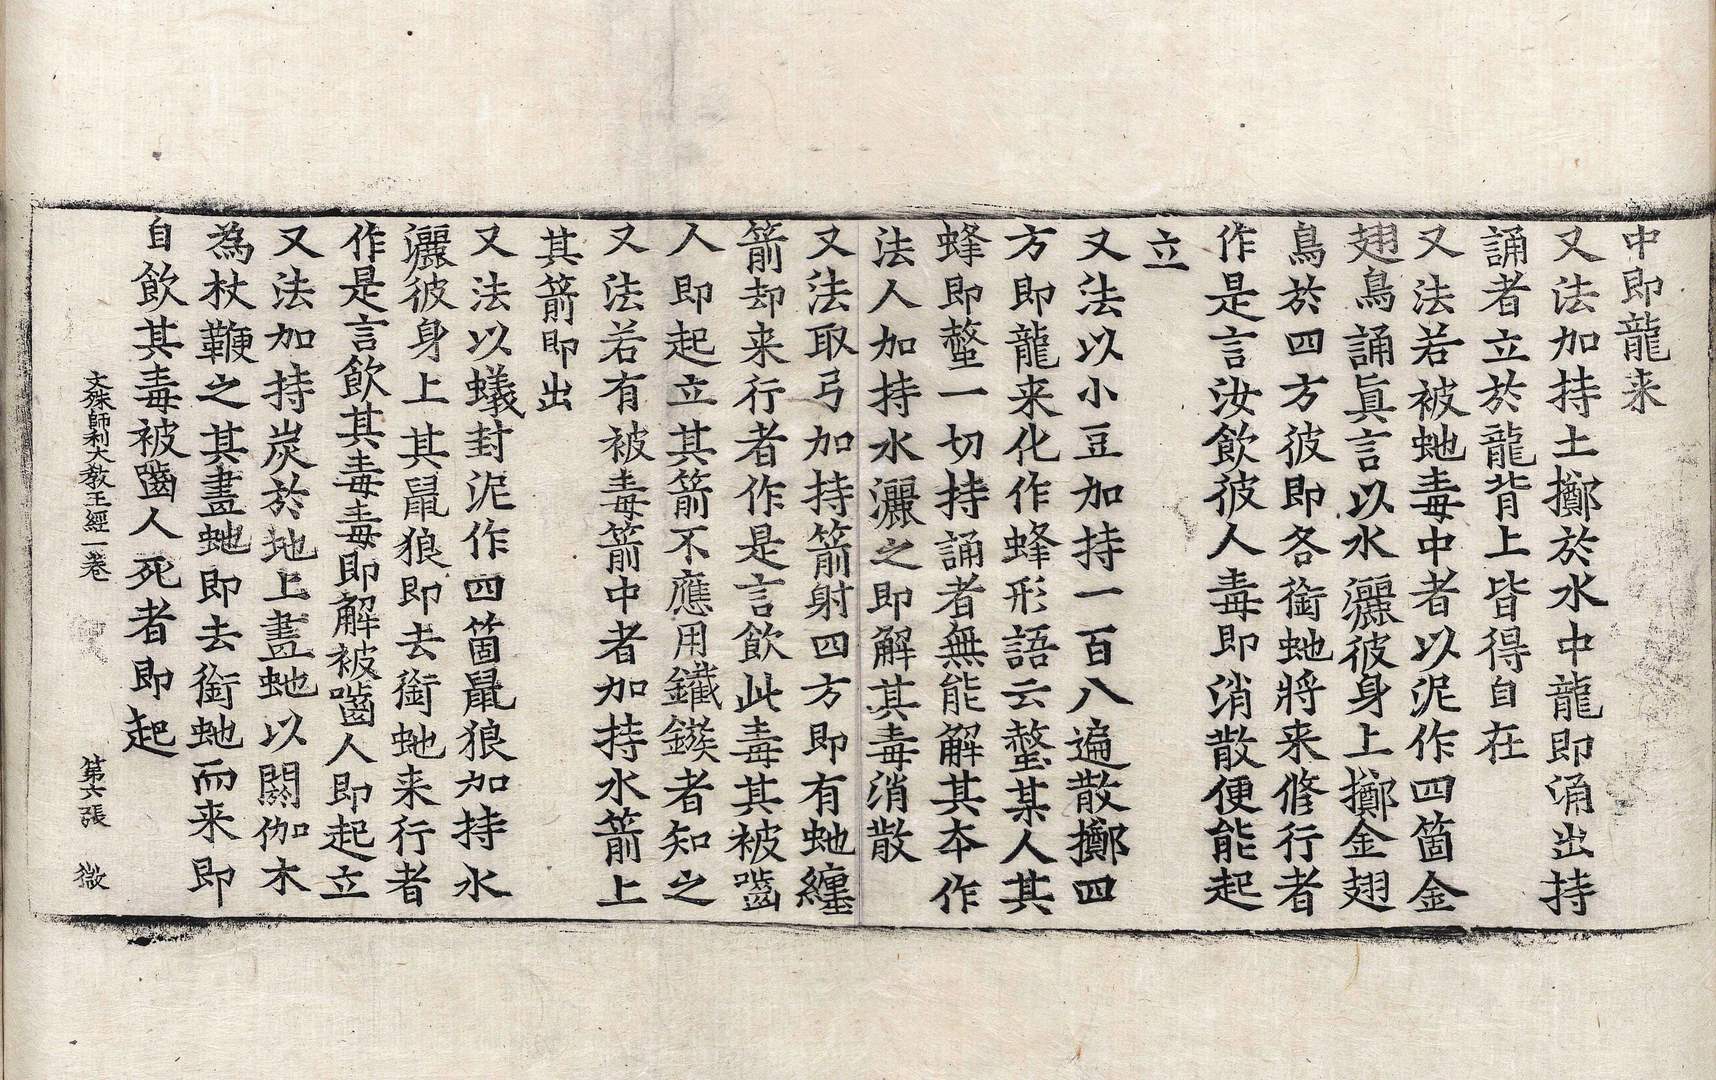 中即龍来
又法加持土擲於水中龍即涌出持
誦者立於龍背上皆得自在
又法若被虵毒中者以泥作四箇金
翅鳥誦眞言以水灑彼身上擲金翅
鳥於四方彼即各銜虵將来修行者
作是言汝飲彼人毒即消散便能起
立
又法以小豆加持一百八遍散擲四
方即龍来化作蜂形語云螫某人其
蜂即螫一切持誦者無能解其夲作
法人加持水灑之即解其毒消散
又法取弓加持箭射四方即有虵纏
箭却来行者作是言飲此毒其被嚙
人即起立其箭不應用鐵鏃者知之
又法若有被毒箭中者加持水箭上
其箭即出
又法以蟻封泥作四箇鼠狼加持水
灑彼身上其鼠狼即去銜虵来行者
作是言飲其毒毒即解被嚙人即起立
又法加持炭於地上畫虵以閼伽木
為杖鞭之其畫虵即去銜虵而来即
自飲其毒被嚙人死者即起
文殊師利大教王經一卷 第六張 微